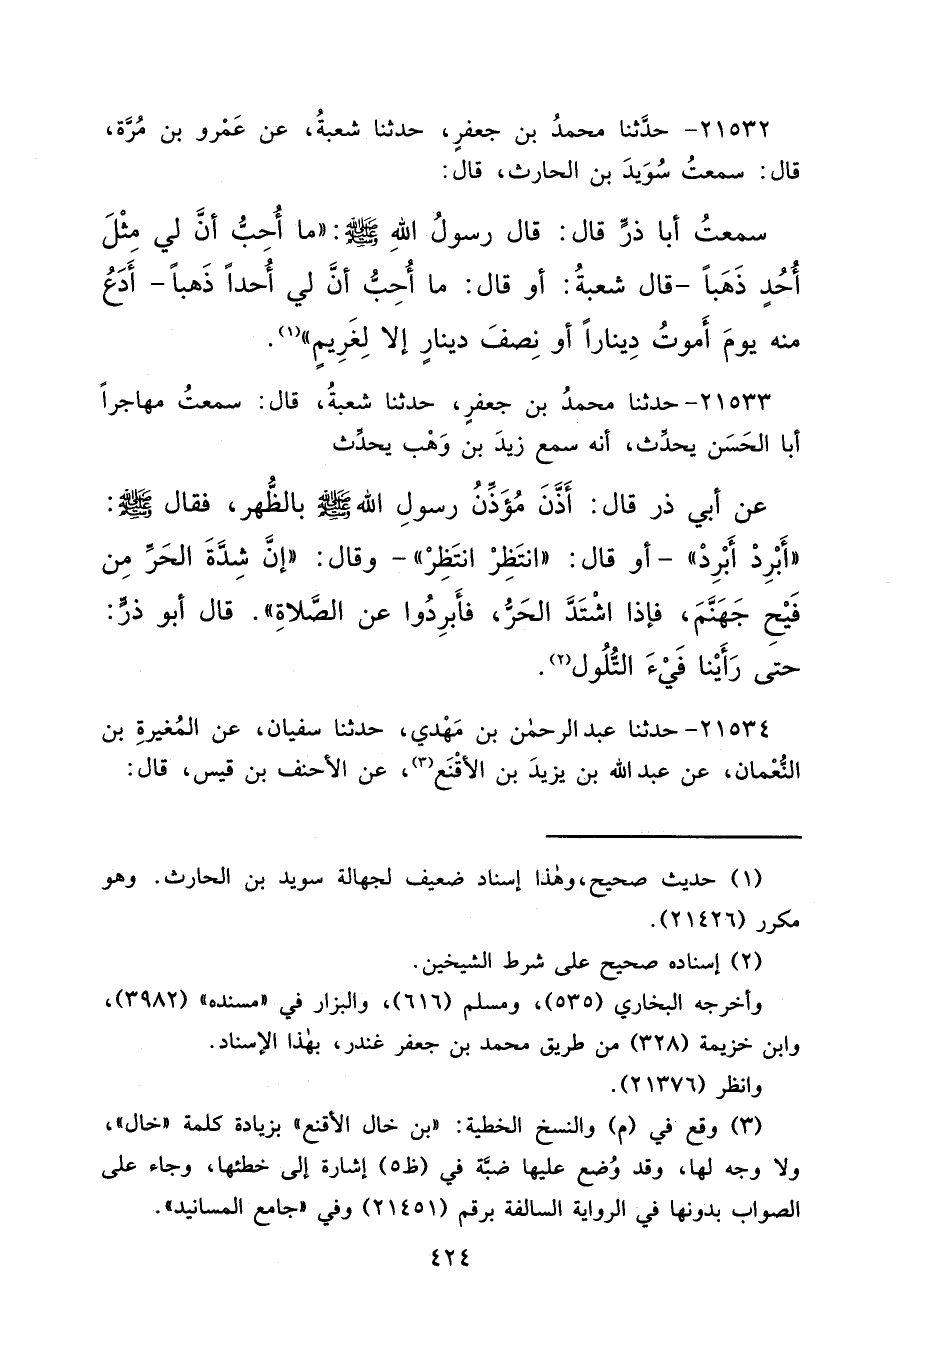 ٢١٥٣٢- حدَّثنا محمدُ بن جعفرٍ، حدثنا شعبةُ، عن عَمْرو بن مُرَّة،
قال: سمعتُ سُوَيدَ بن الحارث، قال:
سمعتُ أبا ذرٍّ قال: قال رسولُ اللهِ ﷺ: «ما أُحِبُّ أنَّ لي مِثْلَ
أُحُدٍ ذَهَباً -قال شعبةُ: أو قال: ما أُحِبُّ أنَّ لي أُحداً ذَهباً- أَدَعُ
منه يومَ أَموتُ دِيناراً أو نِصفَ دينارٍ إلا لِغَرِيمٍ»(١).
٢١٥٣٣- حدثنا محمدُ بن جعفرٍ، حدثنا شعبةُ، قال: سمعتُ مهاجراً
أبا الحَسَن يحدِّث، أنه سمع زيدَ بن وَهْب يحدِّث
عن أبي ذر قال: أَذَّنَ مُؤَذِّنُ رسولِ الله ﷺ بالظُّهر، فقال ﷺ:
«أَبْرِدْ أَبْرِدْ» - أو قال: «انتَظِرْ انتَظِرْ» - وقال: «إنَّ شدَّةَ الحَرِّ مِن
فَيْحِ جَهَنَّمَ، فإذا اشْتَدَّ الحَرُّ، فأَبرِدُوا عن الصَّلاةِ». قال أبو ذرٍّ:
حتى رَأَيْنا فَيْءَ التُّلُول(٢).
٢١٥٣٤- حدثنا عبد الرحمٰن بن مَهْدي، حدثنا سفيان، عن المُغيرةِ بن
النُّعْمان، عن عبد الله بن يزيدَ بن الأقْنَع(٣)، عن الأحنف بن قيس، قال:
(١) حديث صحيح، وهٰذا إسناد ضعيف لجهالة سويد بن الحارث. وهو
مكرر (٢١٤٢٦).
(٢) إسناده صحيح على شرط الشيخين.
وأخرجه البخاري (٥٣٥)، ومسلم (٦١٦)، والبزار في «مسنده» (٣٩٨٢)،
وابن خزيمة (٣٢٨) من طريق محمد بن جعفر غندر، بهٰذا الإسناد.
وانظر (٢١٣٧٦).
(٣) وقع في (م) والنسخ الخطية: «بن خال الأقنع» بزيادة كلمة «خال»،
ولا وجه لها، وقد وُضع عليها ضبَّة في (ظ٥) إشارة إلى خطئها، وجاء على
الصواب بدونها في الرواية السالفة برقم (٢١٤٥١) وفي «جامع المسانيد».
٤٢٤